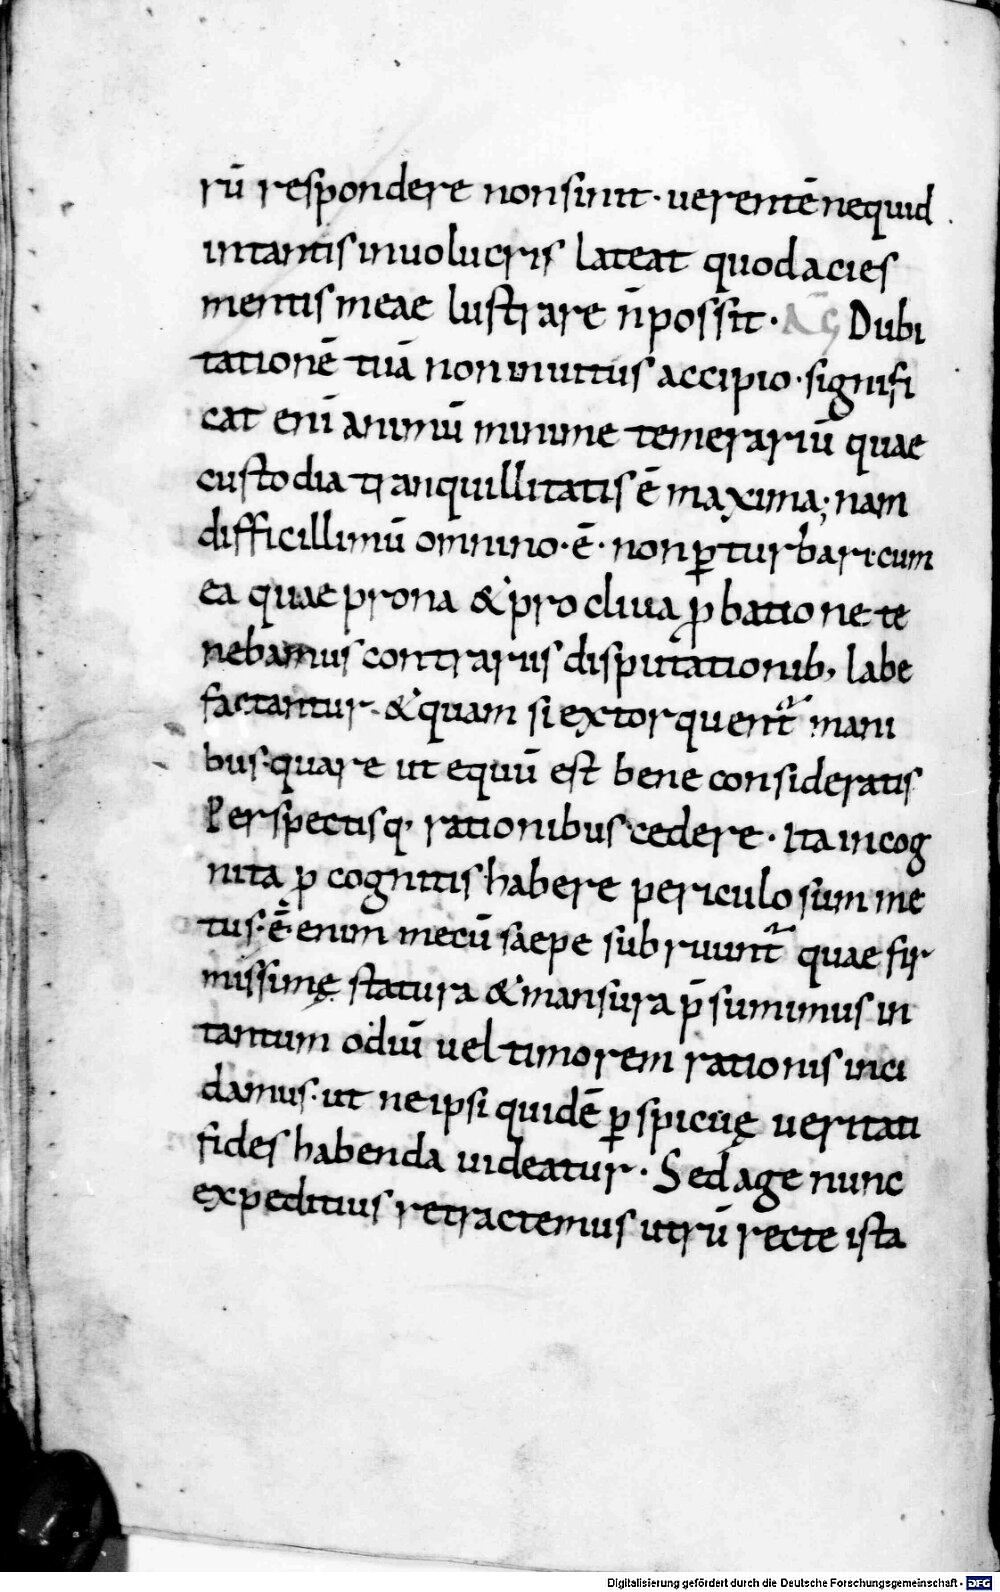 rū respondere non sinit · uerentē nequid
in tantis inuolucris lateat quod acies
mentis meae lustrare n̄ possit · AG̅ Dubi
tationē tuā non inuitus accipio · signifi
cat enī animū minime temerariū quae
custodia tranquillitatis ē maxima; nam
difficillimū omnino · ē · non ꝑturbari · cum
ea quae prona & procliua ꝓbatione te
nebamus contrariis disputationib, labe
factantur · & quam si extorquent᷑ mani
bus · quare ut equū est bene consideratis
Perspectisq, rationibus cedere · Ita incog
nita p cognitis habere periculosum me
tus · ē · enim mecū saepe subruunt᷑ quae fir
missimę statura & mansura p̄sumimus in
tantum odiū uel timorem rationis inci
damus · ut ne ipsi quidē ꝑspicuę ueritati
fides habenda uideatur · Sed age nunc
expeditius retractemus utrū recte ista
Digitalisierung gefördert durch die Deutsche Forschungsgemeinschaft - DFG